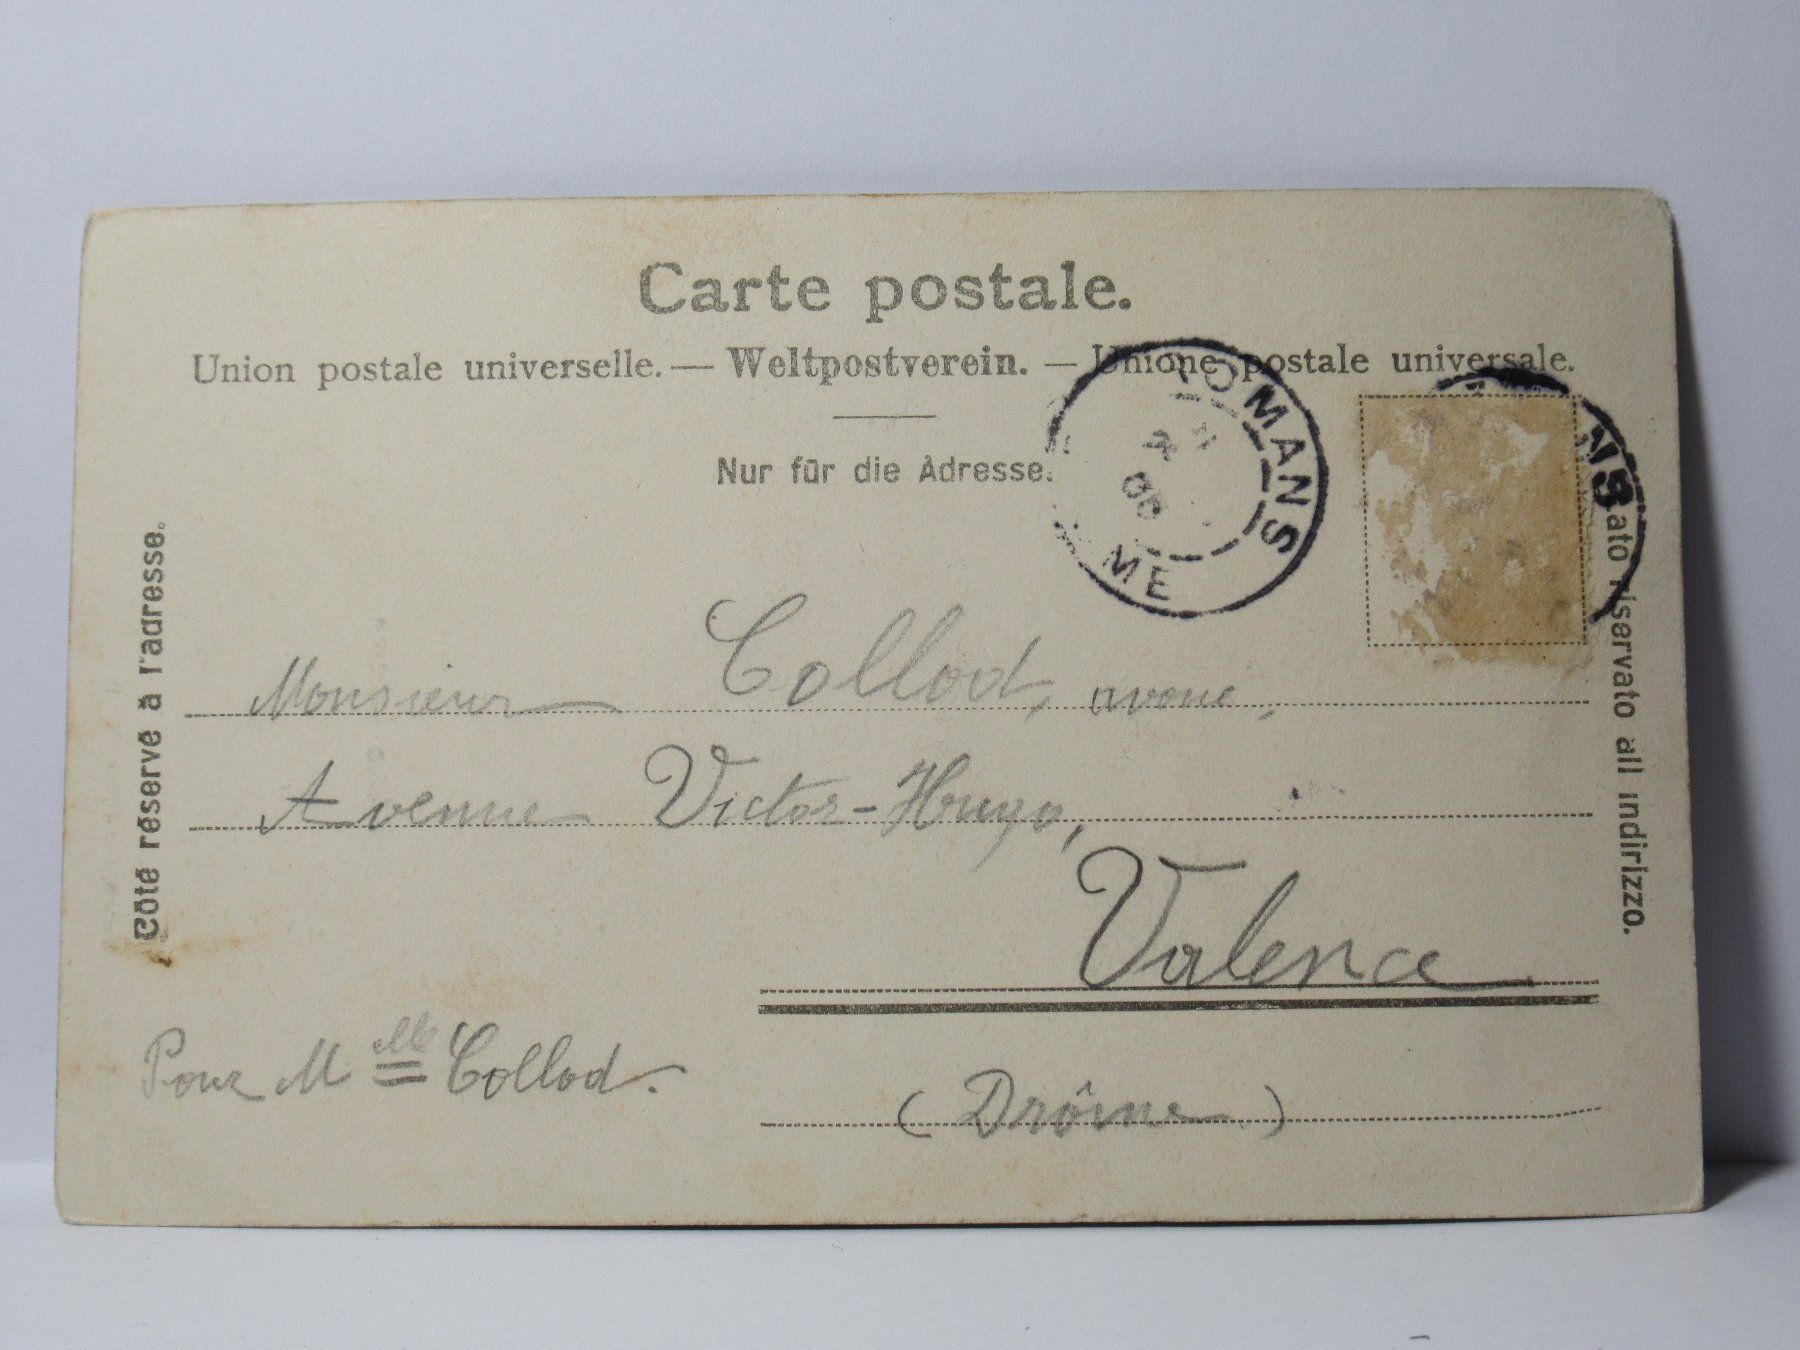 Carte postale.
Union postale universelle. — Weltpostverein. — Unione postale universale.
Nur für die Adresse.
Côté réservé à l'adresse.
ato riservato all indirizzo.
OMANS
ME
NS
Monsieur Collod, avoué,
Avenue Victor-Hugo,
Valence
(Drôme)
Pour M lle Collod.